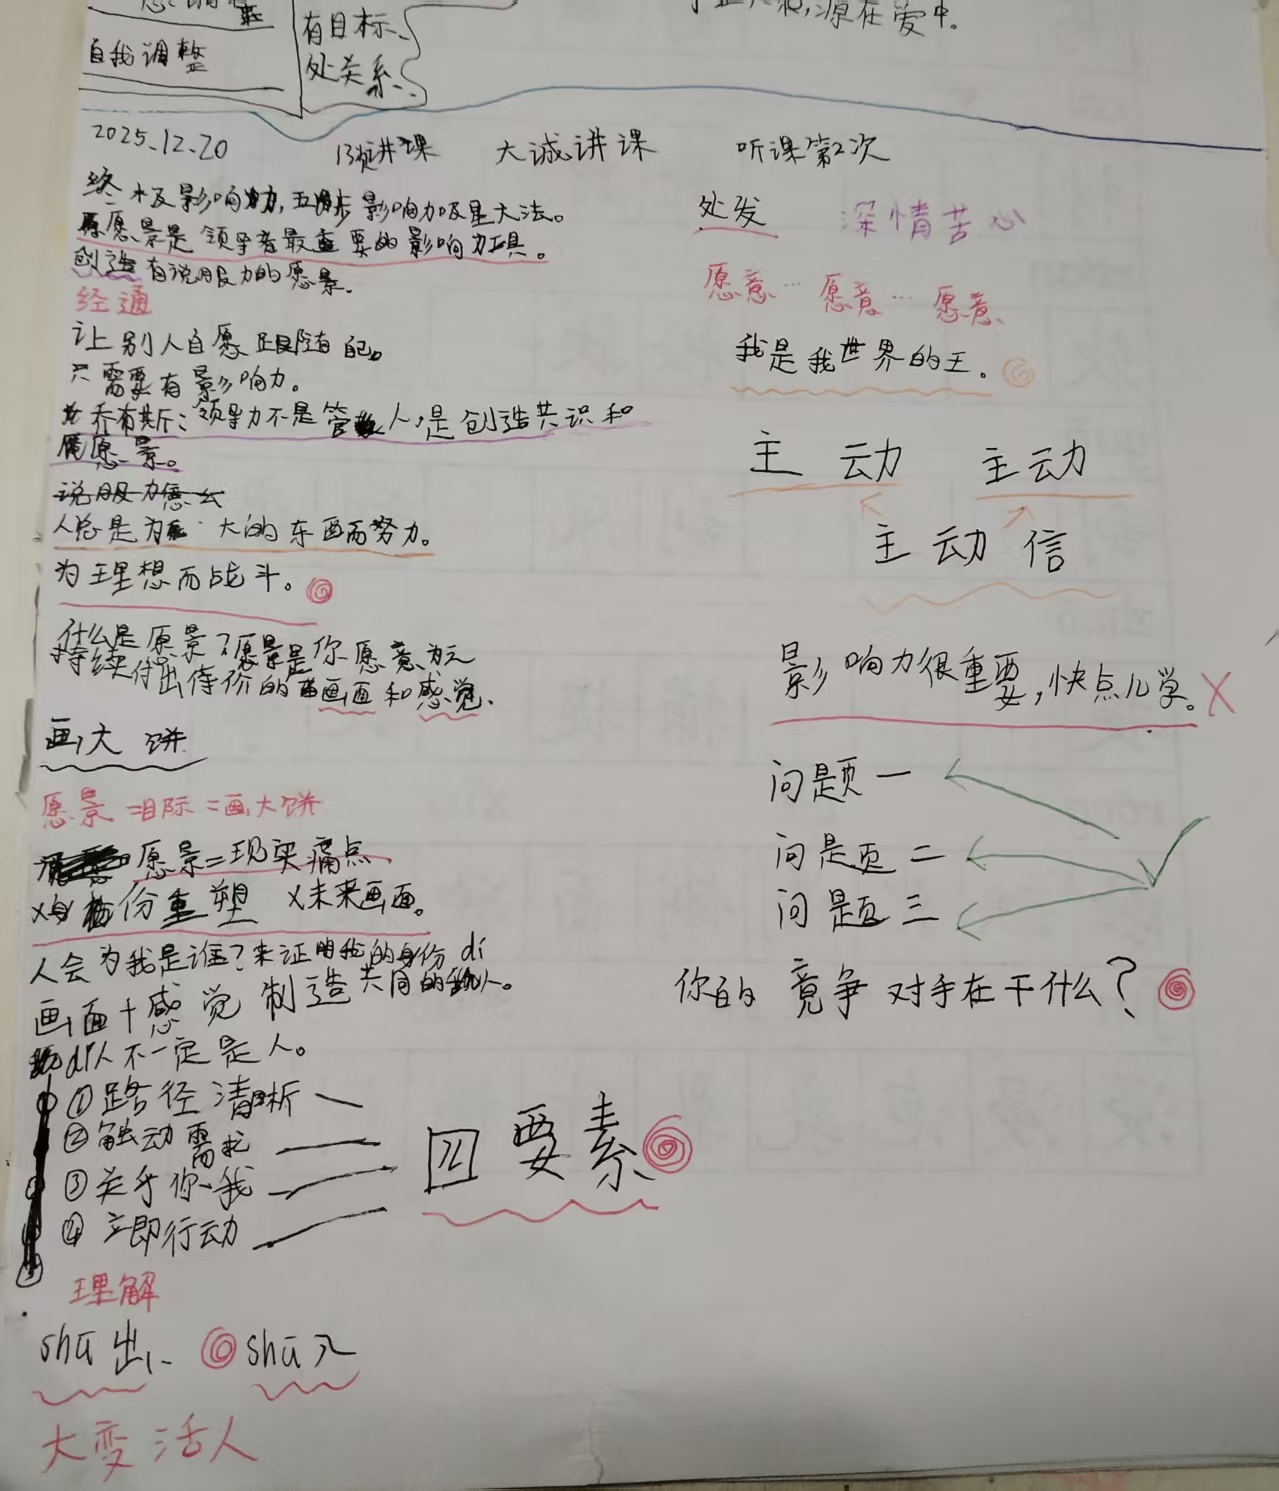 自我调整
有目标、
处关系、
源在爱中。
2025.12.20
讲课
大诚讲课
听课第2次
终极影响力,五步影响力吸星大法。
愿景是领导者最重要的影响力工具。
创造有说服力的愿景.
经通
让别人自愿跟随自己。
只需要有影响力。
乔布斯:领导力不是管人,是创造共识和
愿景。
人总是为大的东西而努力。
为理想而战斗。
什么是原景?愿景是你愿意为之
持续付出待价的画面和感觉.
画大饼
愿景=目际=画大饼
愿景=现实痛点
x身份重塑 x未来画面。
人会为我是谁?来证明我的身份
画面+感觉制造共同的敌人。
di人不一定是人。
①路径清晰
②触动需求
③关乎你、我
④立即行动
四要素
理解
shū出、
shū入
大变活人
处发
深情苦心
愿意…愿意…愿意、
我是我世界的王。
主动 主动
主动信
影响力很重要,快点儿学。X
问题一
问题二
问题三
你的竟争对手在干什么?